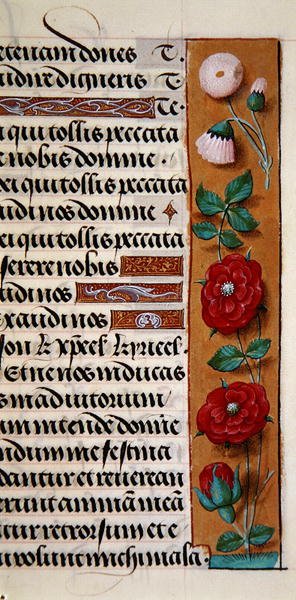 cerenam dones T.
audire digneris T.
Te.
qui tollis peccata
e nobis domine.
dei qui tollis peccata
audi nos domine
ei qui tollis peccata
serere nobis
audi nos
exaudi nos
son Kxpeel. Kyrieel.
Et ne nos inducas
s in adiutorium
um intende domine
ndum me festina
dantur et reverean
erunt animam meā
ntur retrorsum et e
volunt michi mala.